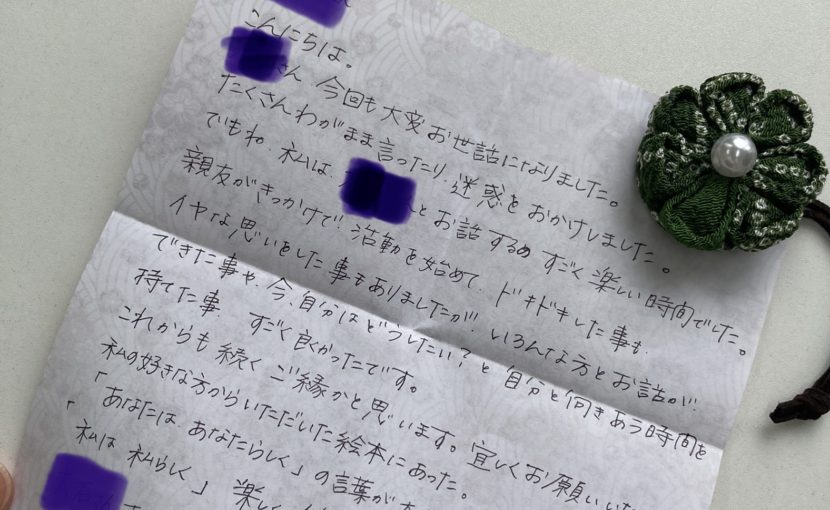 こんにちは。
さん 今回も大変お世話になりました。
たくさんわがまま言ったり、迷惑をおかけしました。
でもね、私は、とお話するの すごく楽しい時間でした。
親友がきっかけで、活動を始めて、ドキドキした事も、
イヤな思いをした事もありましたが、いろんな方とお話が
できた事や、今、自分はどうしたい?と 自分と向きあう時間を
持てた事、すごく良かったです。
これからも続くご縁かと思います。宜しくお願いいた
私の好きな方からいただいた絵本にあった。
「あなたは あなたらしく」の言葉が
「私は 私らしく」 楽しく